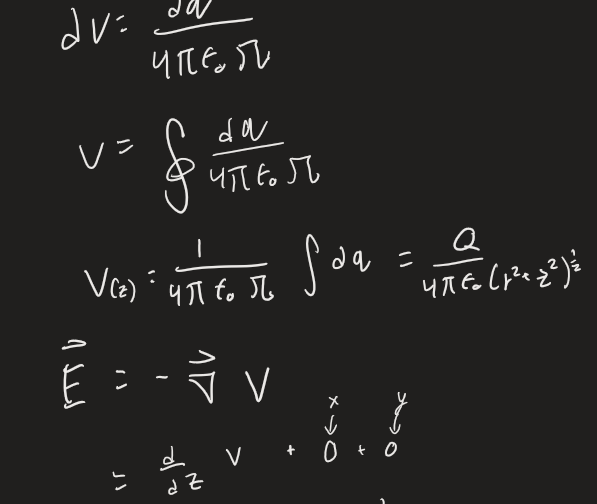 dV = dq / 4πε₀ 𝓇
V = ∮ dq / 4πε₀ 𝓇
V(z) = 1 / 4πε₀ 𝓇 ∫ dq = Q / 4πε₀ (r² + z²)^½
E⃗ = - ∇⃗ V
x y
= d/dz V + 0 + 0